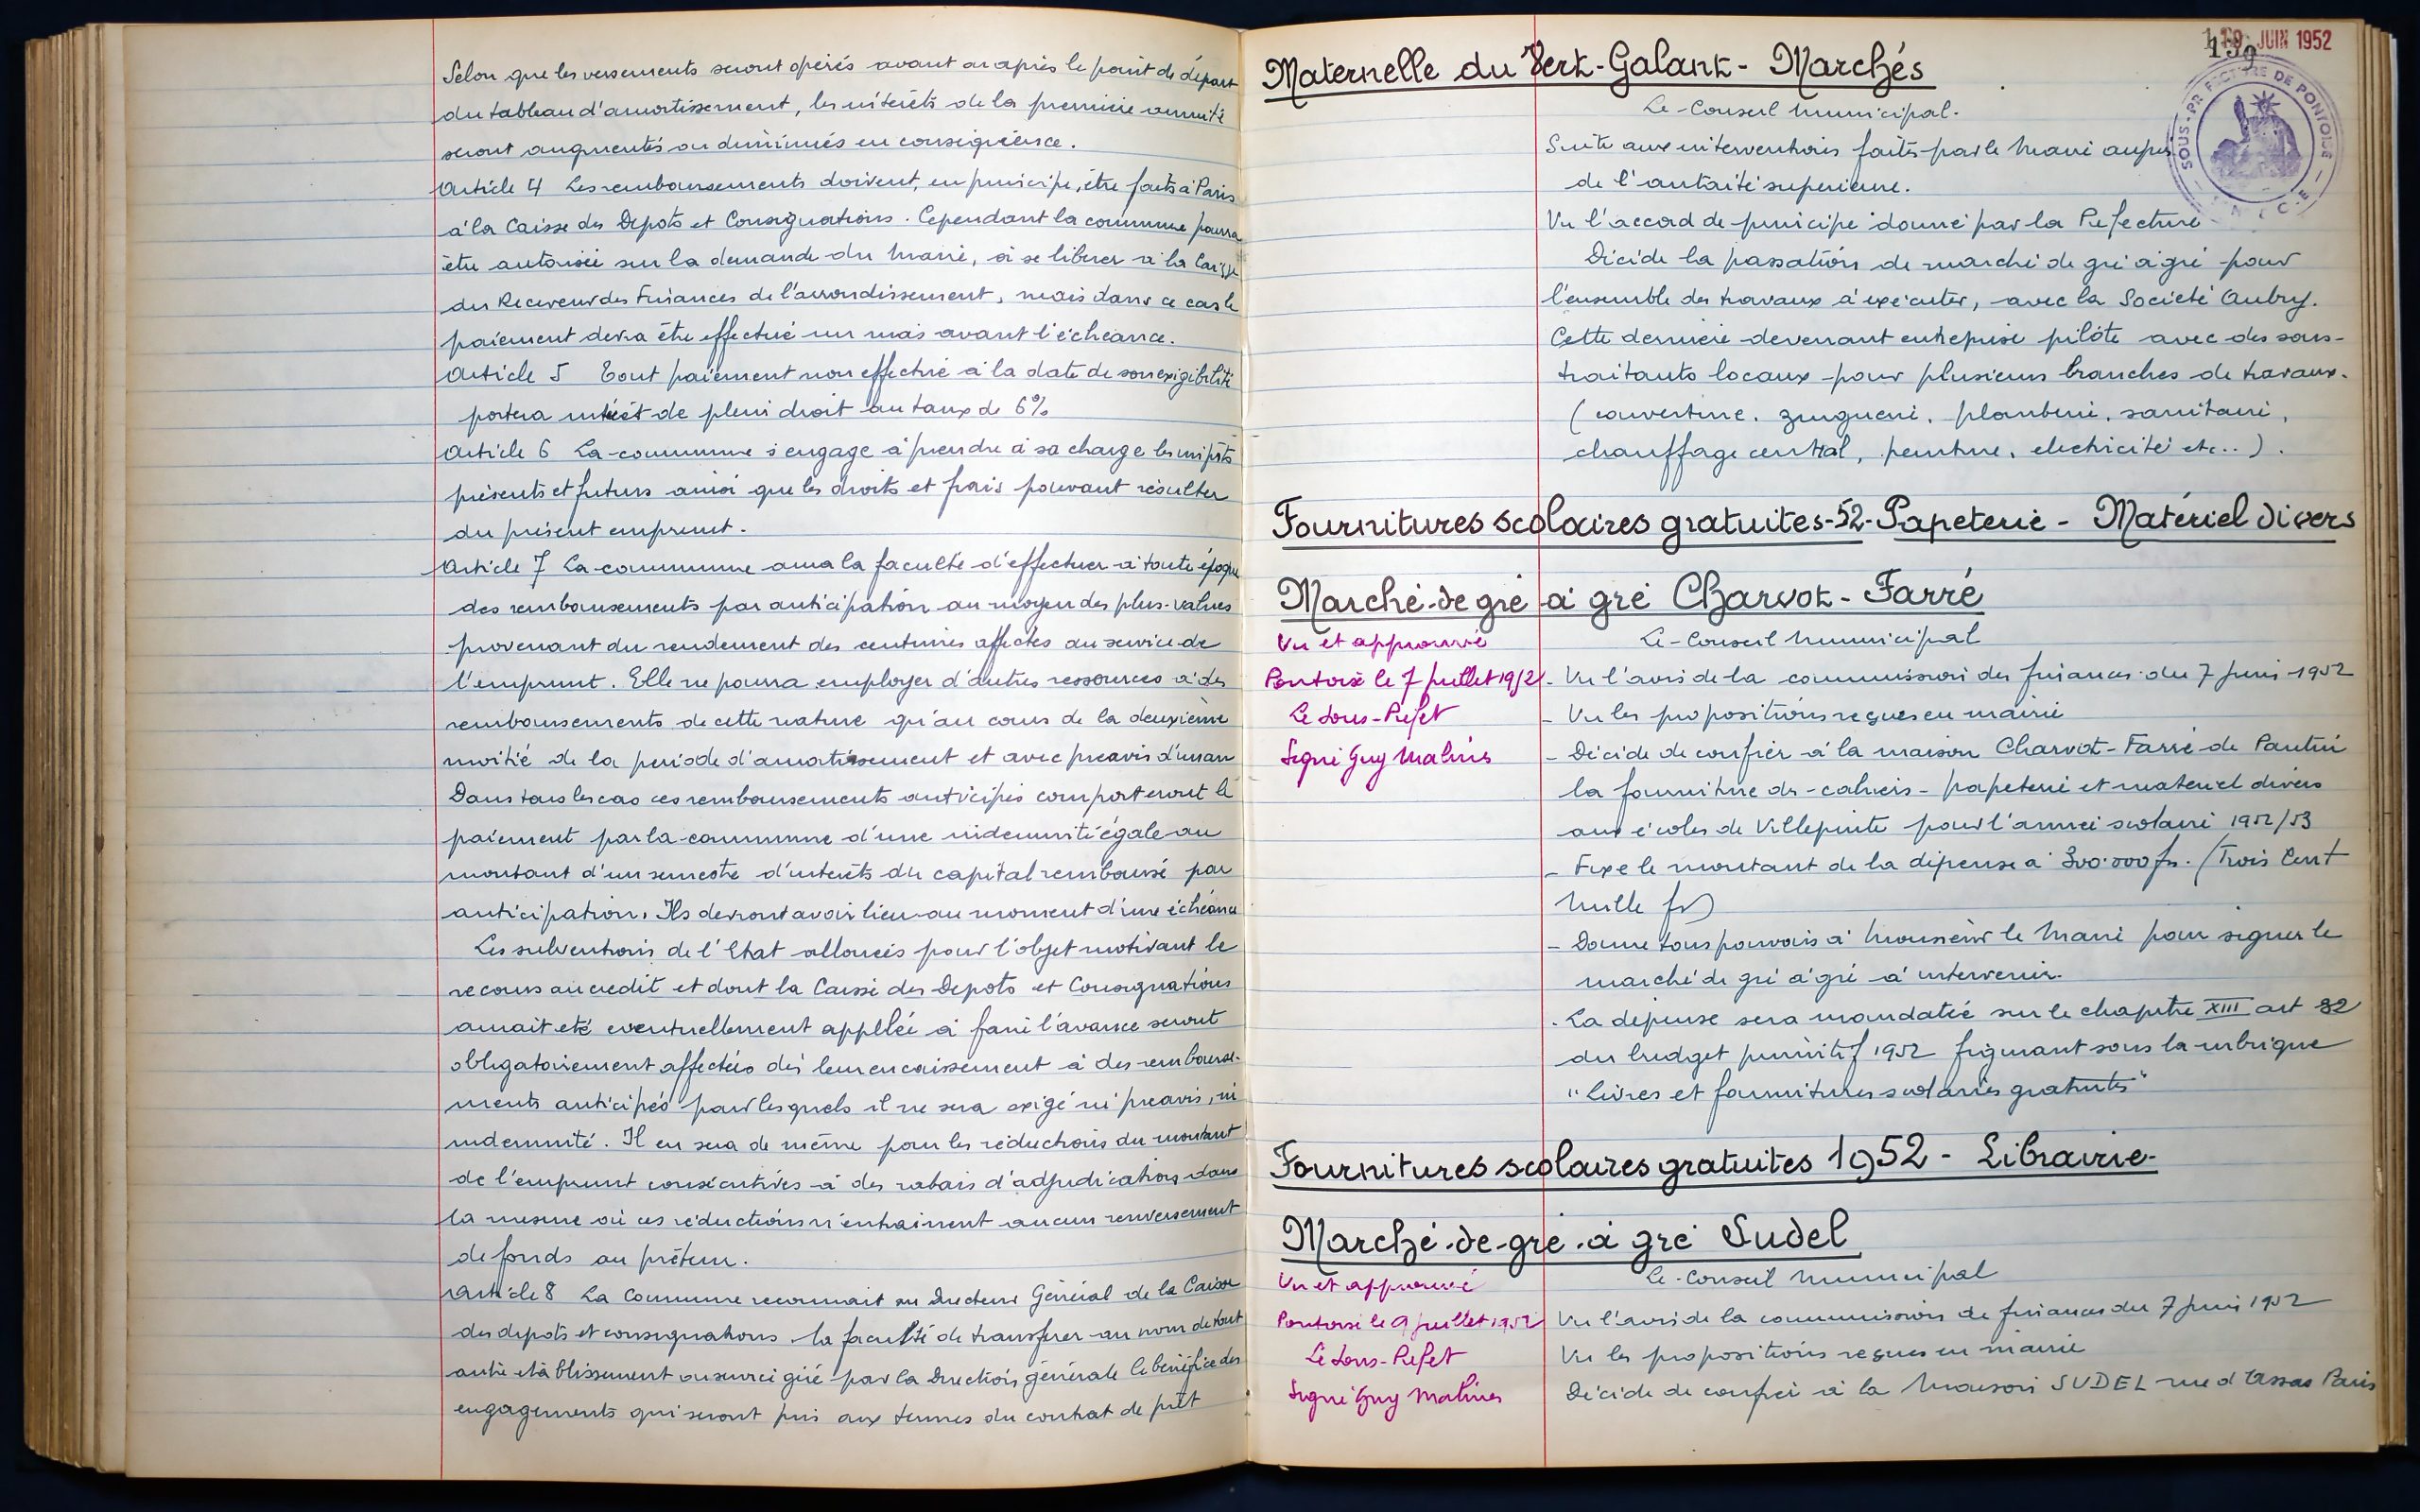 Selon que les versements seront opérés avant ou après le point de départ
du tableau d'amortissement, les intérêts de la première annuité
seront augmentés ou diminués en conséquence.
Article 4 Les remboursements doivent, en principe, être faits à Paris
à la Caisse des Depots et Consignations. Cependant la commune pourra
être autorisée sur la demande du Maire, à se libérer à la Caisse
du Receveur des Finances de l'arrondissement, mais dans ce cas le
paiement devra être effectué un mois avant l'échéance.
Article 5 Tout paiement non effectué à la date de son exigibilité
portera intérêt de plein droit au taux de 6%
Article 6 La commune s'engage à prendre à sa charge les impôts
présents et futurs ainsi que les droits et frais pouvant résulter
du présent emprunt.
Article 7 La commune aura la faculté d'effectuer à toute époque
des remboursements par anticipation au moyen des plus-values
provenant du rendement des centimes affectés au service de
l'emprunt. Elle ne pourra employer d'autres ressources à des
remboursements de cette nature qu'au cours de la deuxième
moitié de la période d'amortissement et avec preavis d'un an
Dans tous les cas ces remboursements anticipés comporteront le
paiement par la commune d'une indemnité égale au
montant d'un semestre d'intérêts du capital remboursé par
anticipation. Ils devront avoir lieu au moment d'une échéance
Les subventions de l'Etat allouées pour l'objet motivant le
recours au credit et dont la Caisse des Depots et Consignations
aurait eté eventuellement appellée à faire l'avance seront
obligatoirement affectées dès leur encaissement à des rembourse-
ments anticipés pour lesquels il ne sera exigé ni preavis, ni
indemnité. Il en sera de même pour les réductions du montant
de l'emprunt consécutives à des rabais d'adjudications dans
la mesure où ces réductions n'entrainent aucun renversement
de fonds au prêteur.
Article 8 La Commune reconnait au Directeur Général de la Caisse
des depots et consignations la faculté de transférer au nom de tout
autre établissement ou service géré par la Direction générale le bénéfice des
engagements qui seront pris aux termes du contrat de prêt
19 JUIN 1952
139
SOUS-PREFECTURE DE PONTOISE
Maternelle du Vert-Galant - Marchés
Le Conseil Municipal.
Suite aux interventions faites par le Maire auprès
de l'autorité supérieure.
Vu l'accord de principe donné par la Préfecture
Décide la passation de marché de gré à gré pour
l'ensemble des travaux à exécuter, avec la Société Aubry.
Cette dernière devenant entreprise pilote avec des sous-
traitants locaux pour plusieurs branches de travaux.
(couverture, zinguerie, plomberie, sanitaire,
chauffage central, peinture, electricité etc..).
Fournitures scolaires gratuites-52-Papeterie - Matériel divers
Marché de gré à gré Charvot-Farré
Vu et approuvé
Pontoise le 7 Juillet 1952
Le Sous-Préfet
Signé Guy Malines
Le Conseil Municipal
- Vu l'avis de la commission des finances du 7 Juin 1952
- Vu les propositions reçues en mairie
- Décide de confier à la maison Charvot-Farré de Pantin
la fourniture de - cahiers - papeterie et matériel divers
aux écoles de Villepinte pour l'année scolaire 1952/53
- Fixe le montant de la dépense à 300.000 frs. (Trois Cent
Mille frs)
- Donne tous pouvoirs à Monsieur le Maire pour signer le
marché de gré à gré à intervenir.
. La dépense sera mandatée sur le chapitre XIII art 32
du budget primitif 1952 figurant sous la rubrique
"Livres et fournitures scolaires gratuites"
Fournitures scolaires gratuites 1952 - Librairie-
Marché-de-gré à gré Sudel
Vu et approuvé
Pontoise le 9 juillet 1952
Le Sous-Préfet
Signé Guy Malines
Le Conseil Municipal
Vu l'avis de la commission de finances du 7 Juin 1952
Vu les propositions reçues en mairie
Décide de confier à la Maison SUDEL rue d'Assas Paris